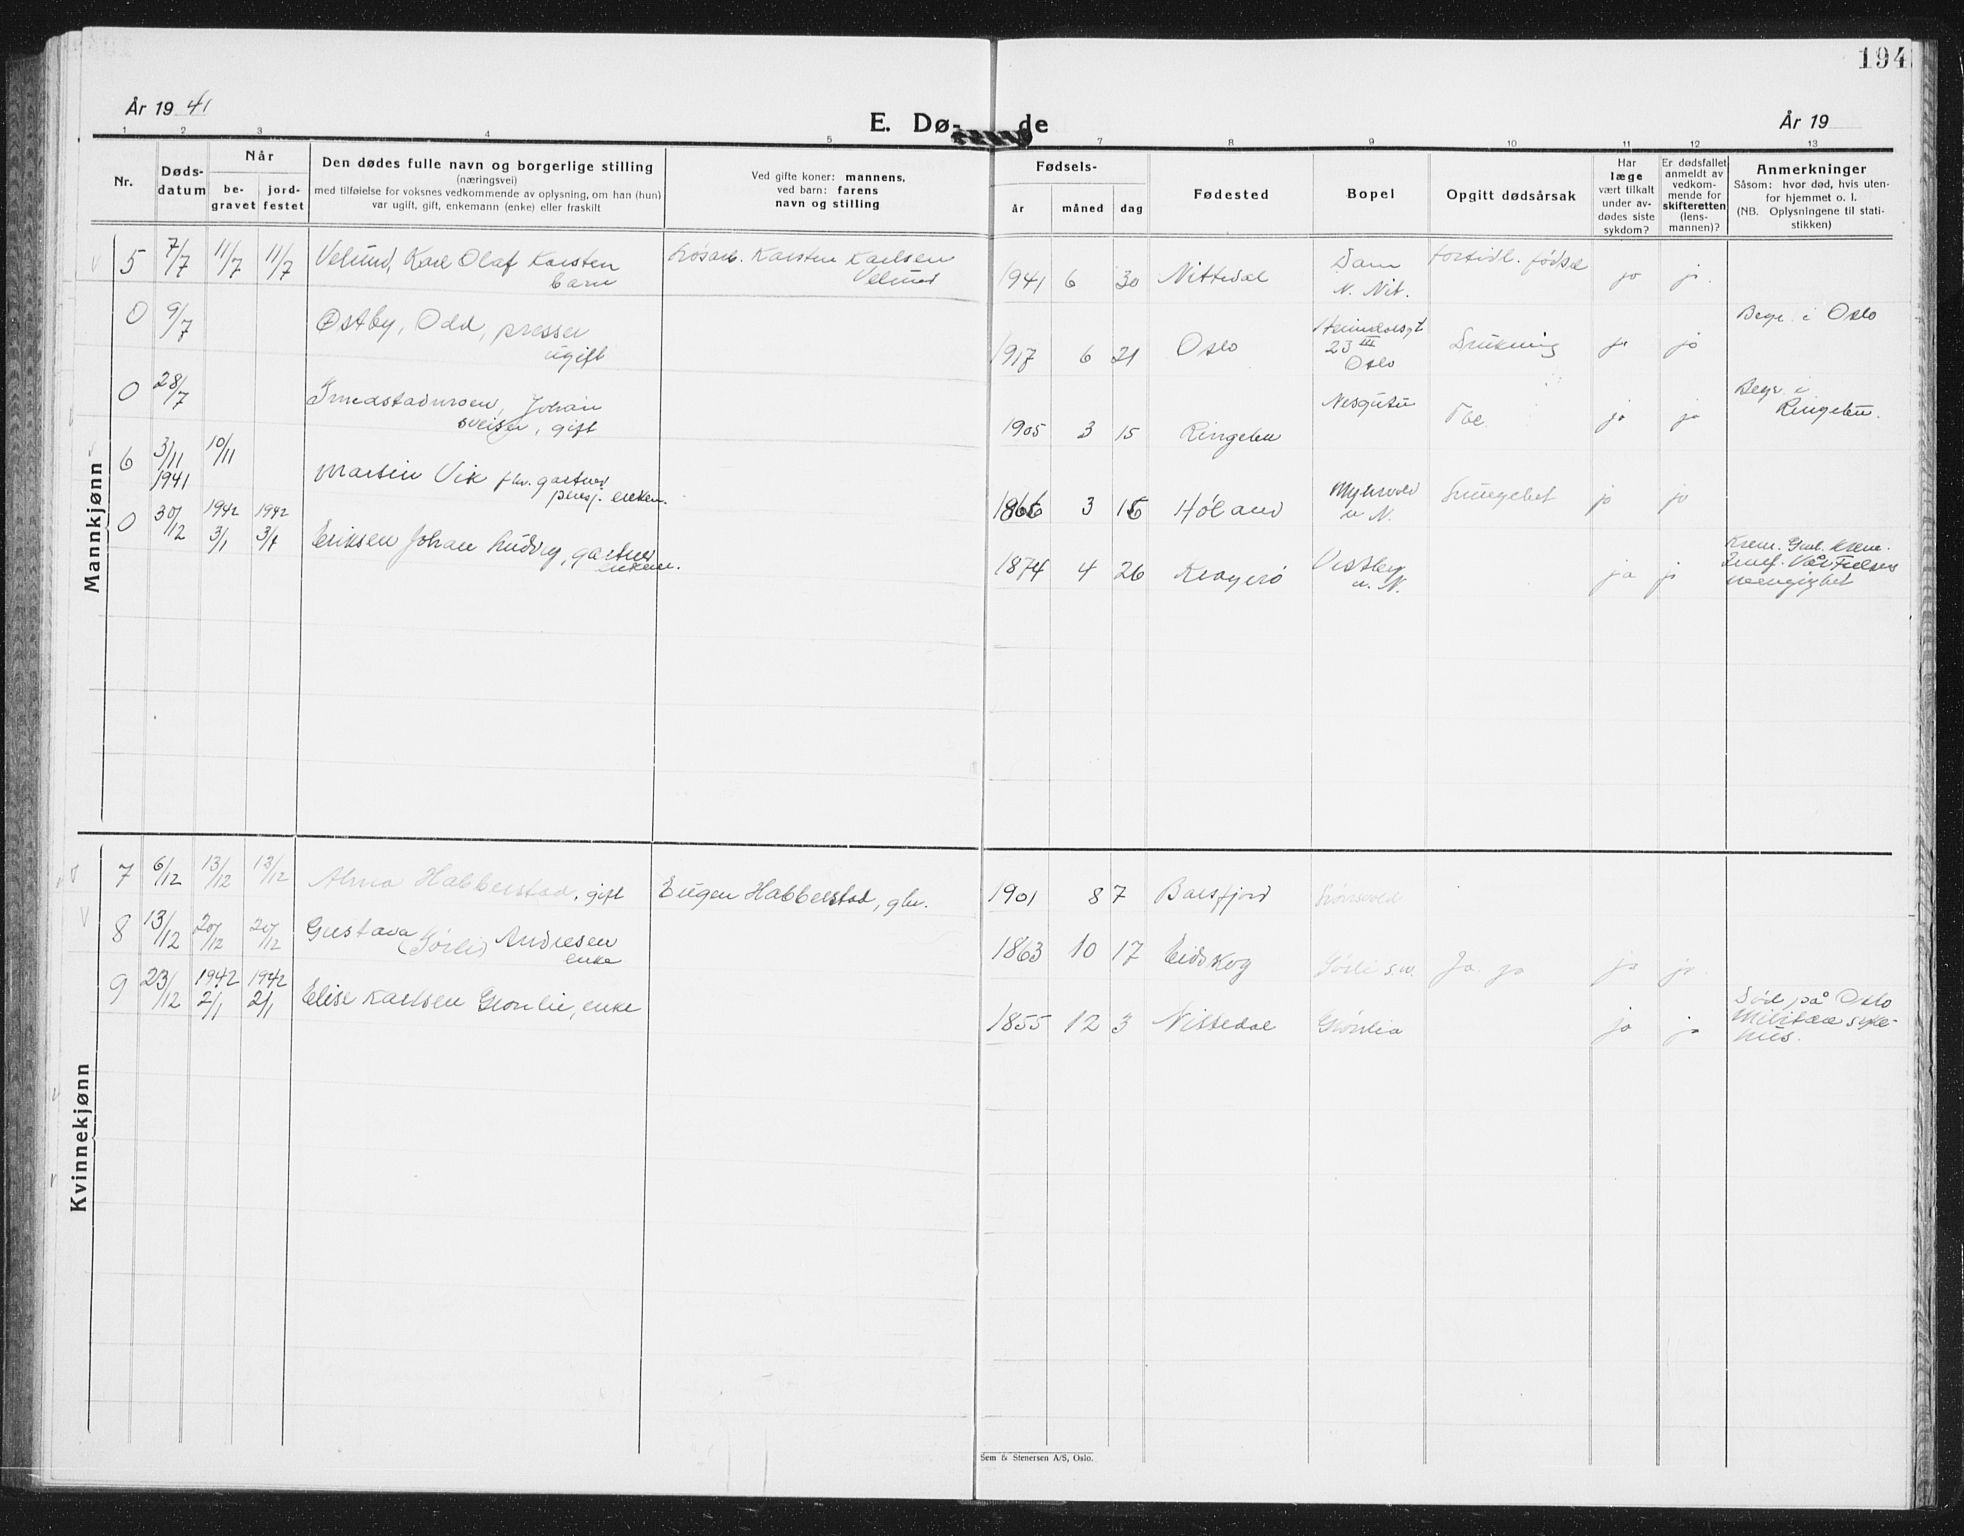 194
År 19 41
E. Dø- de
År 19
1 2 3 4 5 7 8 9 10 11 12 13
Nr.
Døds-
datum
Når
be-
gravet
jord-
festet
Den dødes fulle navn og borgerlige stilling
(næringsvei)
med tilføielse for voksnes vedkommende av oplysning, om han (hun)
var ugift, gift, enkemann (enke) eller fraskilt
Ved gifte koner: mannens,
ved barn: farens
navn og stilling
Fødsels-
år
måned
dag
Fødested
Bopel
Opgitt dødsårsak
Har
læge
vært tilkalt
under av-
dødes siste
sykdom?
Er dødsfallet
anmeldt av
vedkom-
mende for
skifteretten
(lens-
mannen)?
Anmerkninger
Såsom: hvor død, hvis uten-
for hjemmet o. l.
(NB. Oplysningene til stati-
stikken)
Mannkjønn
5 7/7 11/7 11/7 Velund, Karl Olaf Karsten
barn
Karsten Karlsen
Velund
1941 6 30 Nittedal
Dam
N. Nit.
fortidl. fødsel
ja ja.
0 9/7
Østby, Odd, presser
ugift
1917 6 21 Oslo
23 III
Oslo
Drukning
ja ja
Begr. i Oslo
0 28/7
Johan
sveiser, gift
1905 3 15 Ringebu
Tbc.
ja ja
Begr. i
Ringebu.
6 3/11
1941
10/11
Martin Vik fhv. gartner
pensj. enkem.
3 Høland
Myhrvold
u N.
ja ja
0 30/12
1942
3/1
1942
3/1
Eriksen Johan Ludvig, gartner
enkem.
1874 4 26 Kragerø
Vestby
u. N.
ja ja
Kvinnekjønn
7 6/12 13/12 13/12 Alma Habberstad, gift
Eugen Habberstad, gbr.
1901 8 7 Balsfjord
8 13/12 20/12 20/12 Gustava (Sørli) Andresen
enke
1863 10 17 Eidskog
Sørli s.w.
ja ja.
9 23/12
1942
2/1
1942
2/1
Elise Karlsen Grønlie, enke
1855 12 3 Nittedal
Grønlia
ja ja
Død på Oslo
Militære syke-
hus.
Sem & Stenersen A/S, Oslo.